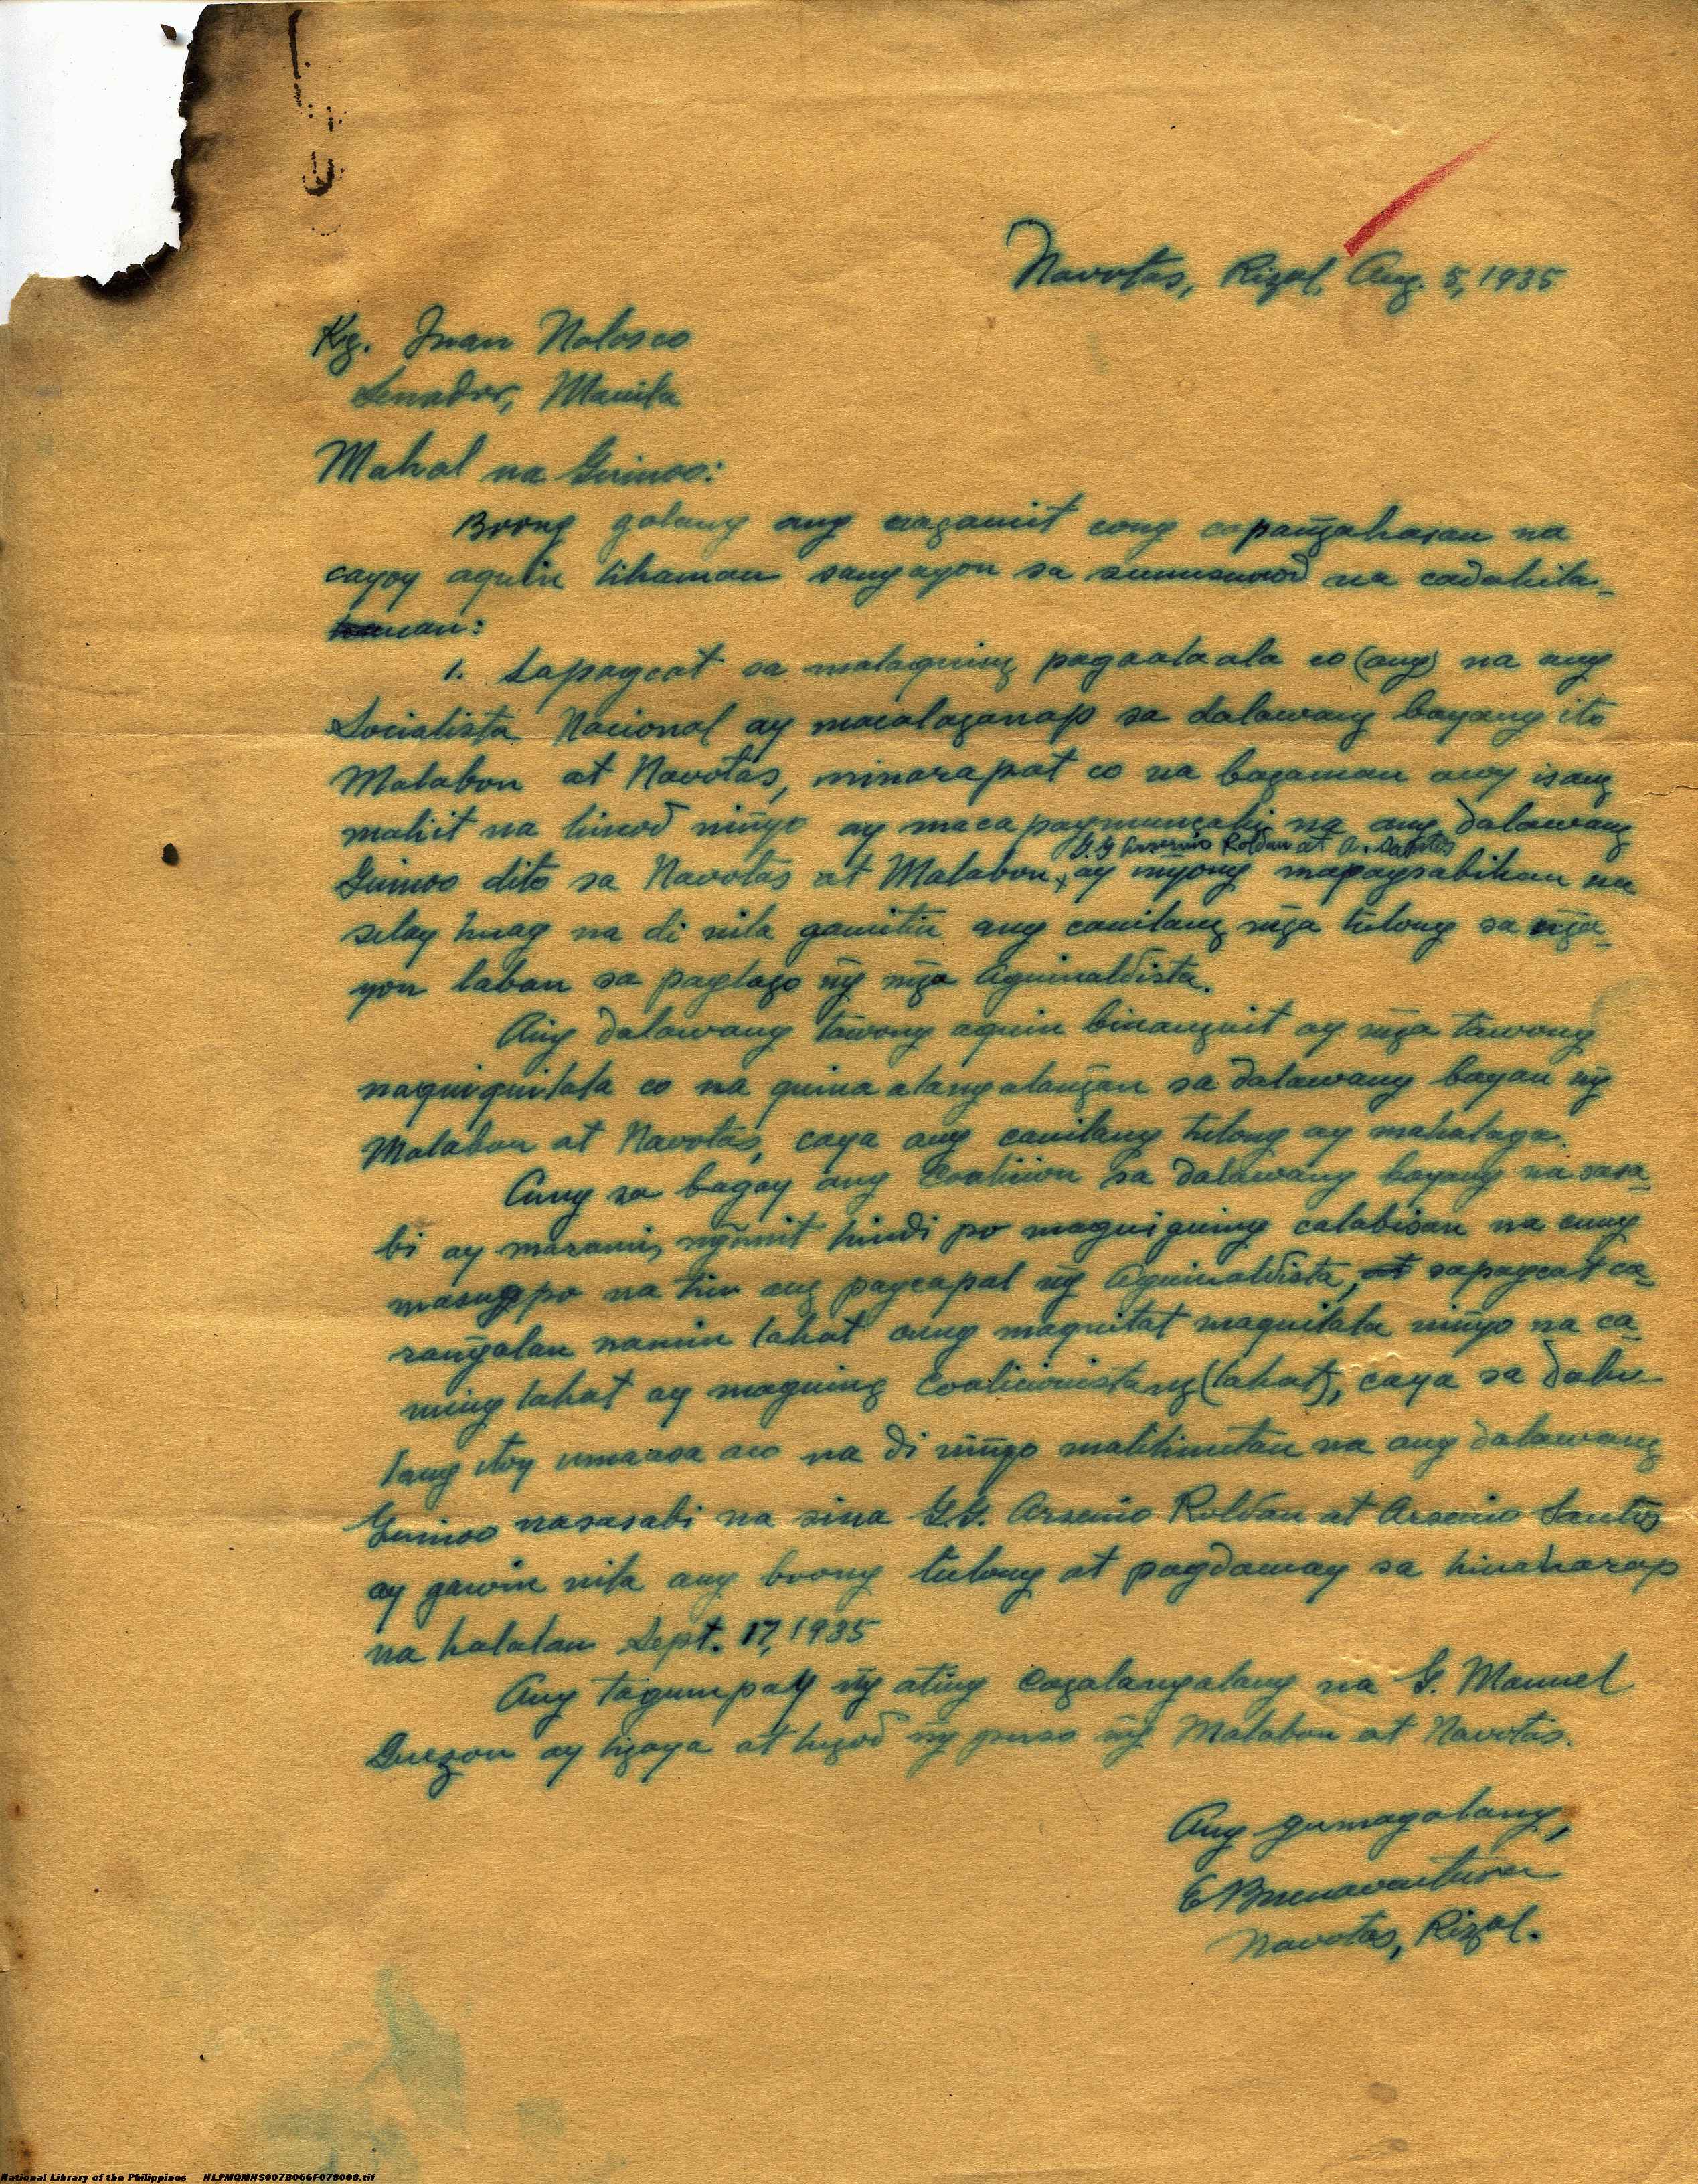 Navotas, Rizal, Aug. 5, 1935
Kg. Juan Nolosco
Senador, Manila
Mahal na Guinoo:
Boong galang ang nagamit cong capang̃ahasan na
cayoy aquin lihaman sangayon sa sumusunod na cadahila-
nan:
1. Sapagcat sa malaguing pagaalaala co (ang) na ang
Socialista Nacional ay macalaganap sa dalawang bayang ito
Malabon at Navotas, minarapat co na bagaman aco'y isang
maliit na lincod ninyo ay maca pagmungcahi na ang dalawang
G.G Arsenio Roldan at A. Santos
Guinoo dito sa Navotas at Malabon, ay inyong mapagsabihan na
silay huag na di nila gamitin ang canilang mg̃a tulong sa ng̃a-
yon laban sa paglago ng̃ mg̃a Aguinaldista.
Ang dalawang tawong aquin binanguit ay mg̃a tawong
naquiquilala co na guina alang alang̃an sa dalawang bayan ng̃
Malabon at Navotas, caya ang canilang tulong ay mahalaga.
Cung sa bagay ang Coalicion sa dalawang bayang na sasa-
bi ay marami, ng̃unit hindi po maguiguing calabisan na cung
masugpo na tin ang pagcapal ng̃ Aguinaldista, at sapagcat ca-
rang̃alan namin lahat cung maquitat maquilala ninyo na ca-
ming lahat ay maguing Coalicionistang (lahat), caya sa dahi-
lang itoy umaasa aco na di ninyo malilimutan na ang dalawang
Guinoo nasasabi na sina G.G. Arsenio Roldan at Arsenio Santos
ay gawin nila ang boong tulong at pagdamay sa hinaharap
na halalan Sept. 17, 1935
Ang tagumpay ng̃ ating Cagalanggalang na G. Manuel
Quezon ay ligaya at lugod ng̃ puso ng̃ Malabon at Navotas.
Ang gumagalang,
E Buenaventura
Navotas, Rizal.
National Library of the Philippines NLPMQMNS007B066F078008.tif